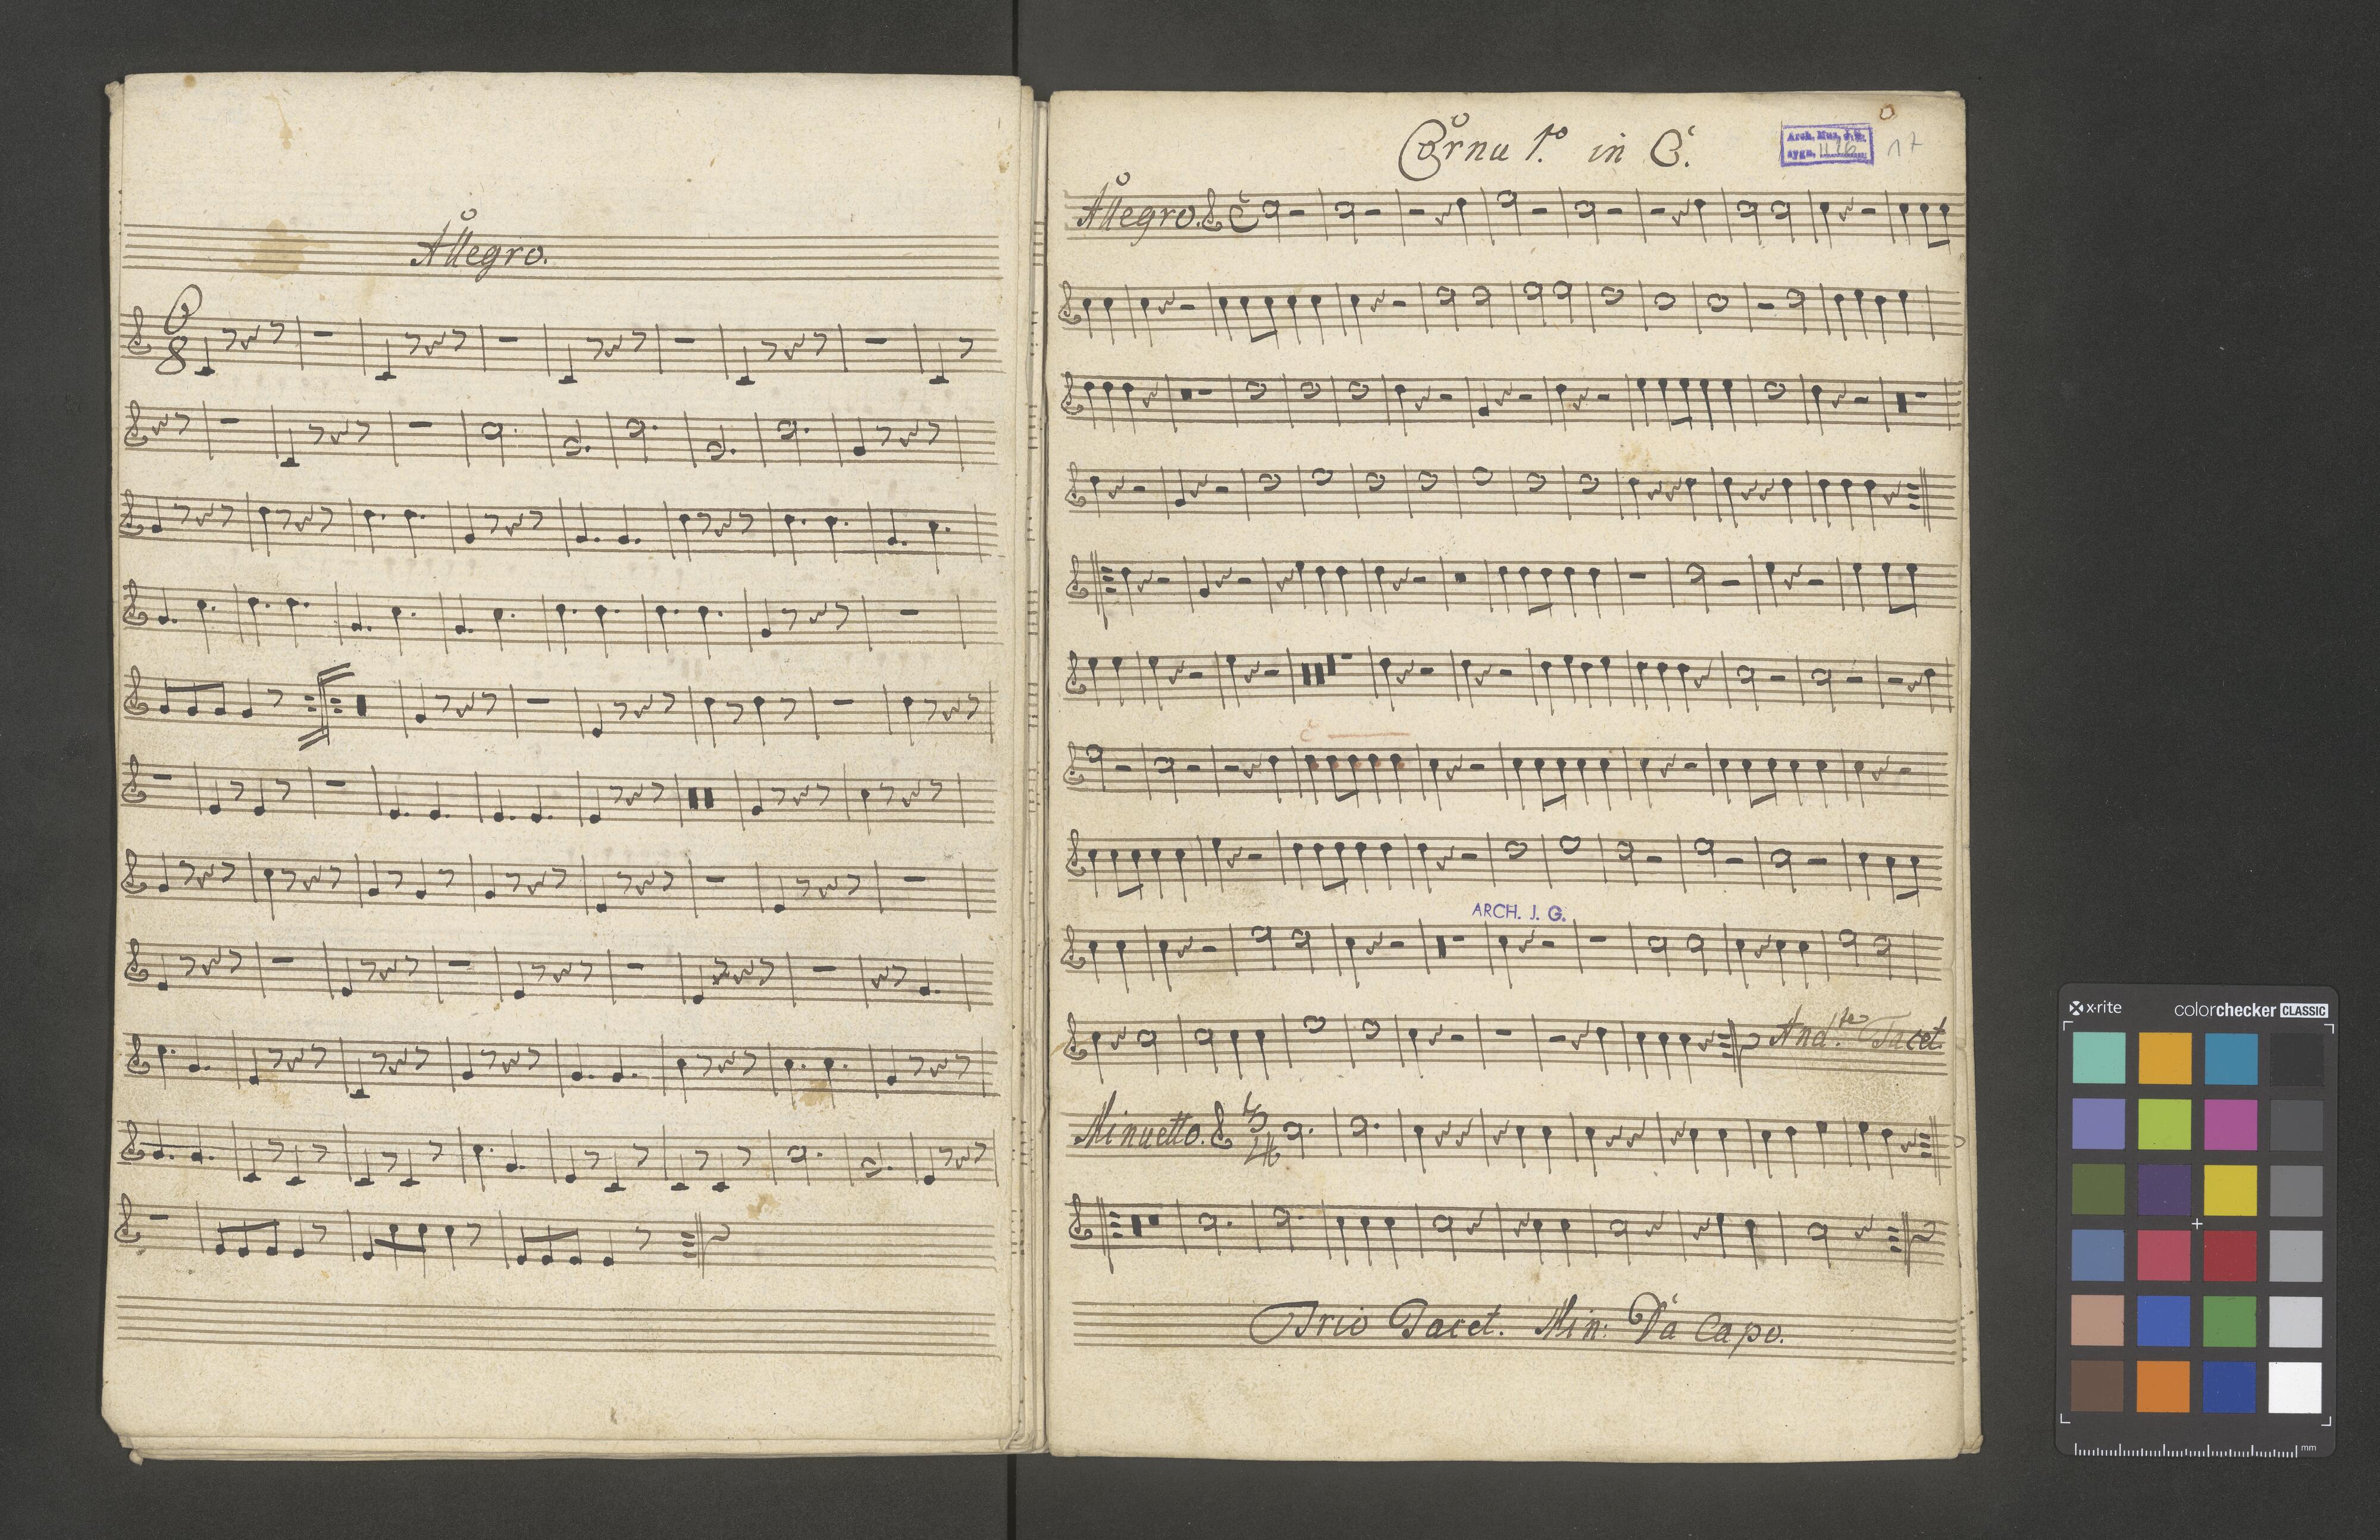 Allegro.
6
8
Cornu 1.mo in C.
Arch. Muz. J. G.
sygn. II 26
17
Allegro. C
ARCH. J. G.
And.te Tacet.
Minuetto. 3
4
Trio Tacet. Min: Da Capo.
x-rite
colorchecker CLASSIC
mm